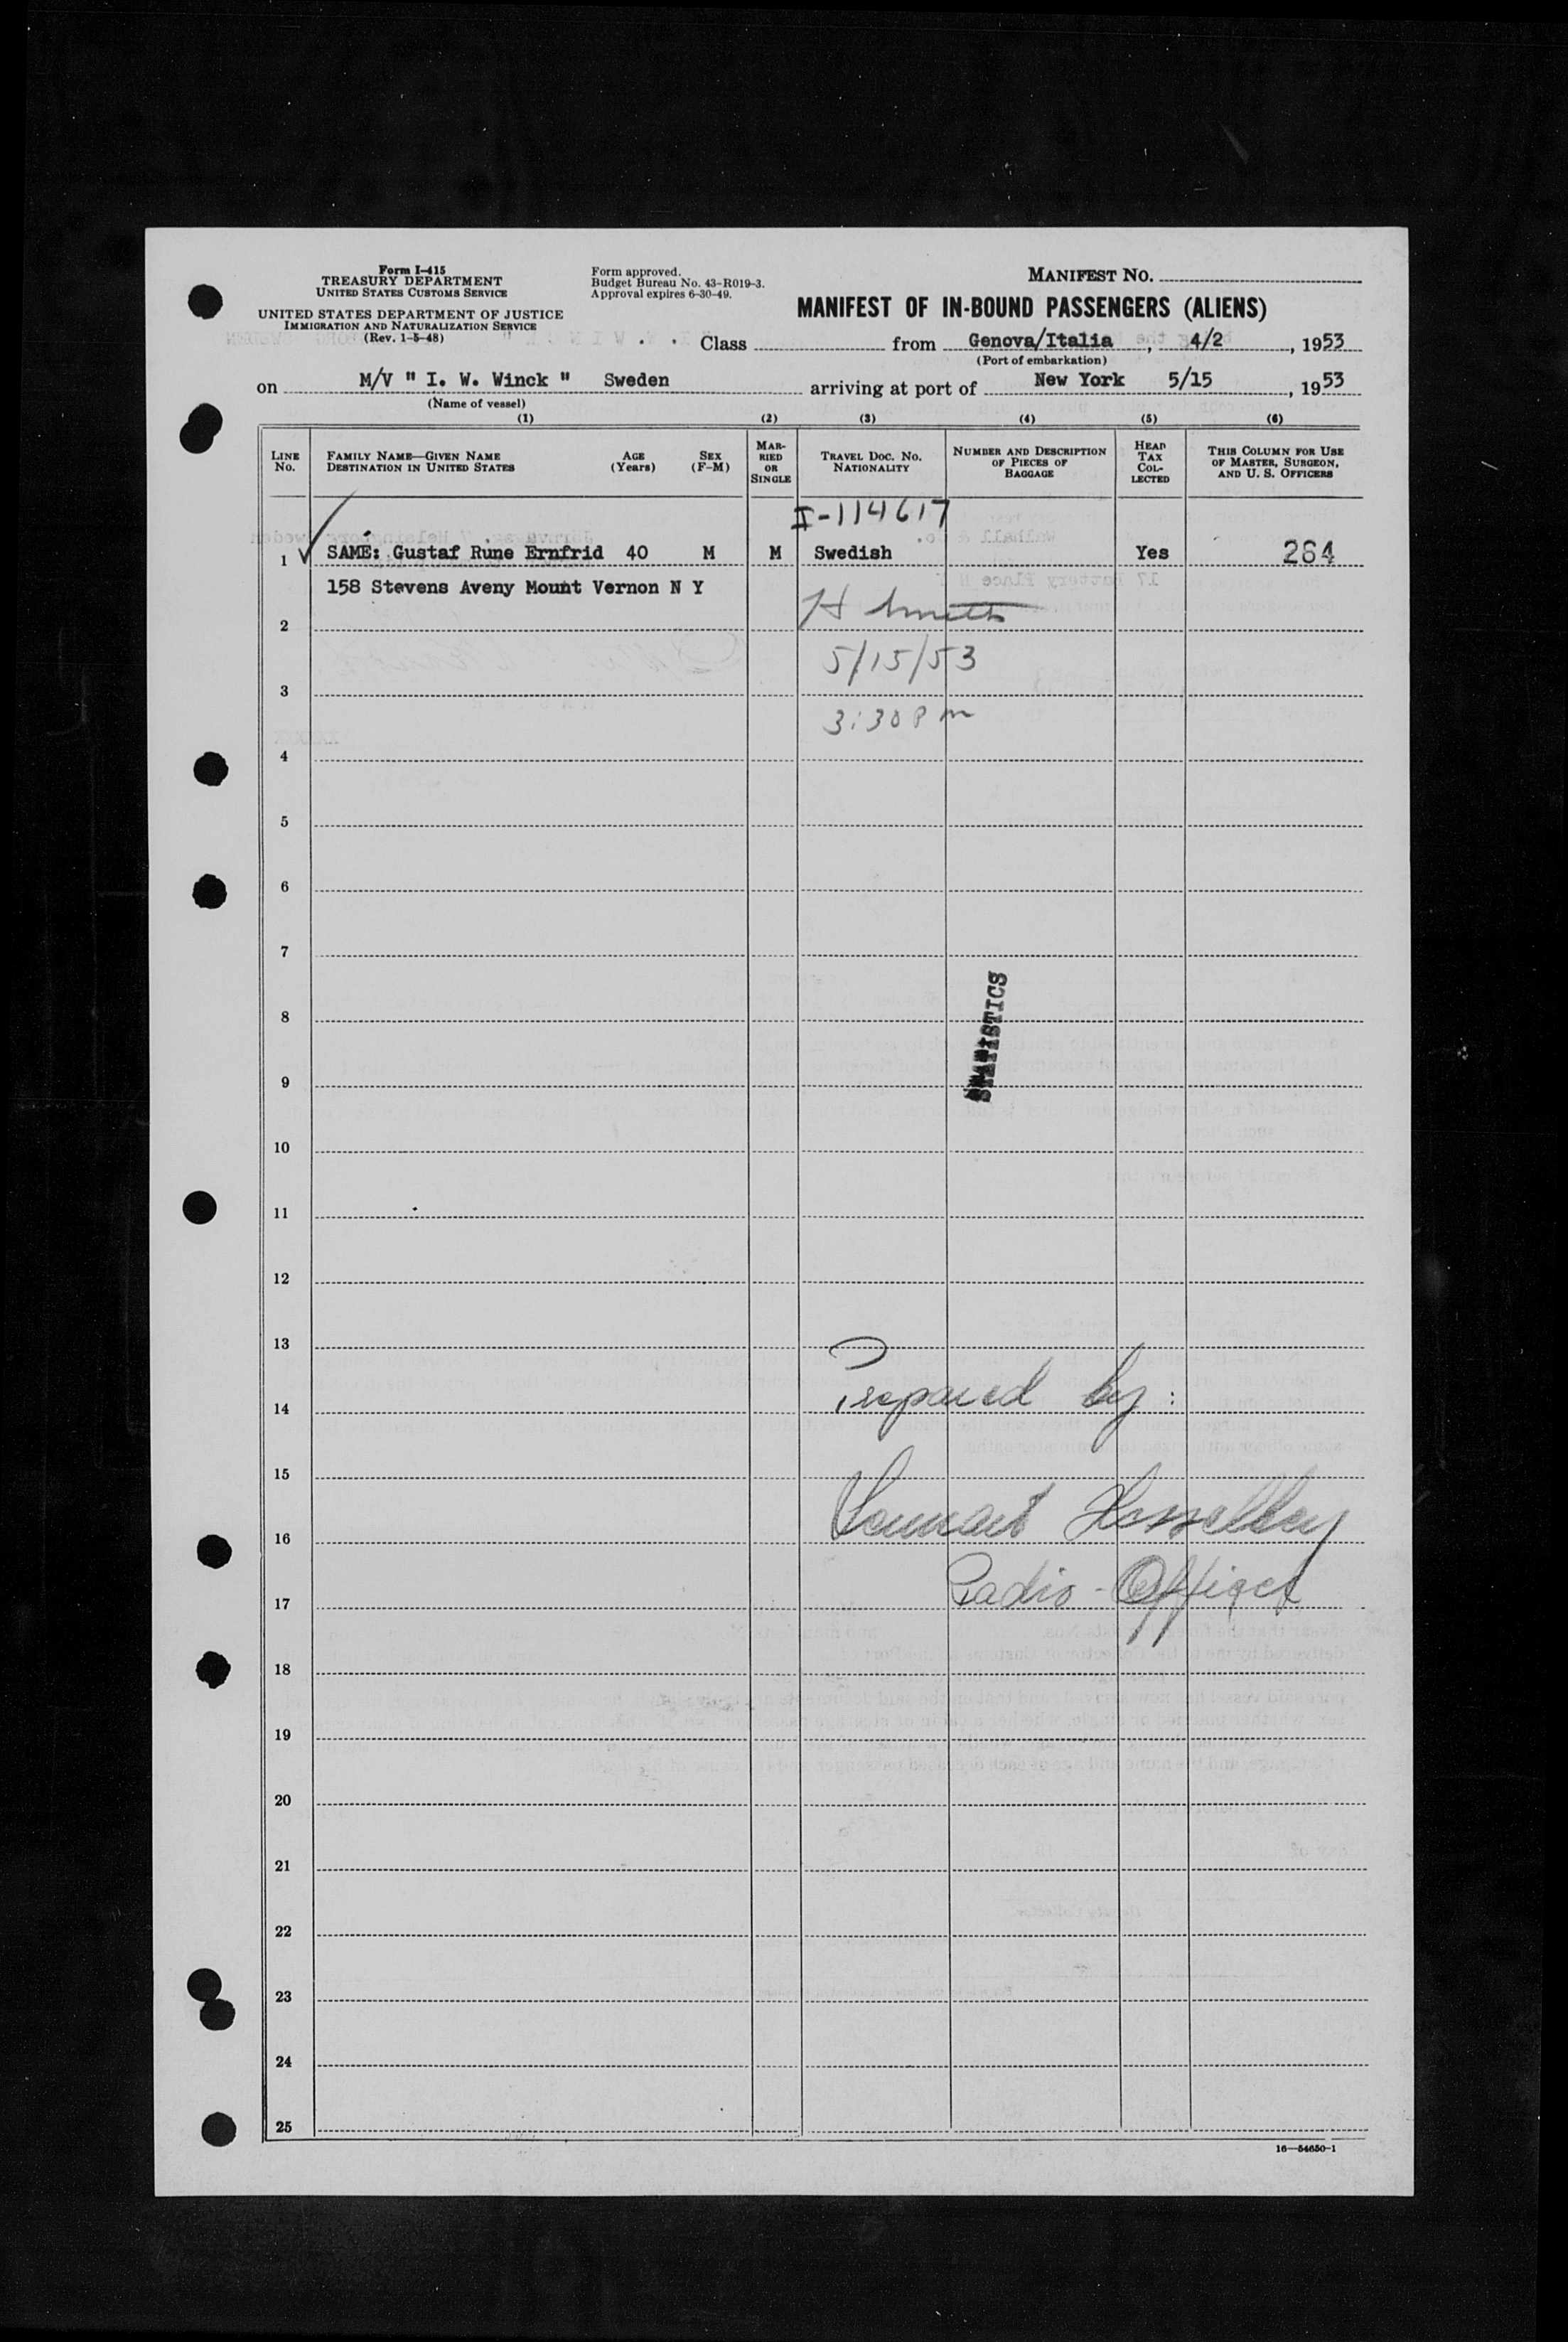 Form I-415
TREASURY DEPARTMENT
UNITED STATES CUSTOMS SERVICE
UNITED STATES DEPARTMENT OF JUSTICE
IMMIGRATION AND NATURALIZATION SERVICE
(Rev. 1-5-48)
Form approved.
Budget Bureau No. 43-R019-3.
Approval expires 6-30-49.
MANIFEST NO.
MANIFEST OF IN-BOUND PASSENGERS (ALIENS)
Class from Genova/Italia, 4/2, 1953
(Port of embarkation)
on M/V " I. W. Winck " Sweden arriving at port of New York 5/15, 1953
(Name of vessel)
(1) (2) (3) (4) (5) (6)
LINE No. FAMILY NAME—GIVEN NAME DESTINATION IN UNITED STATES AGE (Years) SEX (F-M) MARRIED OR SINGLE TRAVEL DOC. NO. NATIONALITY NUMBER AND DESCRIPTION OF PIECES OF BAGGAGE HEAD TAX COLLECTED THIS COLUMN FOR USE OF MASTER, SURGEON, AND U. S. OFFICERS
I-114617
1 SAMÉ: Gustaf Rune Ernfrid 40 M M Swedish Yes 264
158 Stevens Aveny Mount Vernon N Y
2 H Smith
3 5/15/53
3:30 Pm
4
5
6
7
8
STATISTICS
9
10
11
12
13
14 Prepared by:
15
16 Lennart
17 Radio-Officer
18
19
20
21
22
23
24
25
16—54650-1